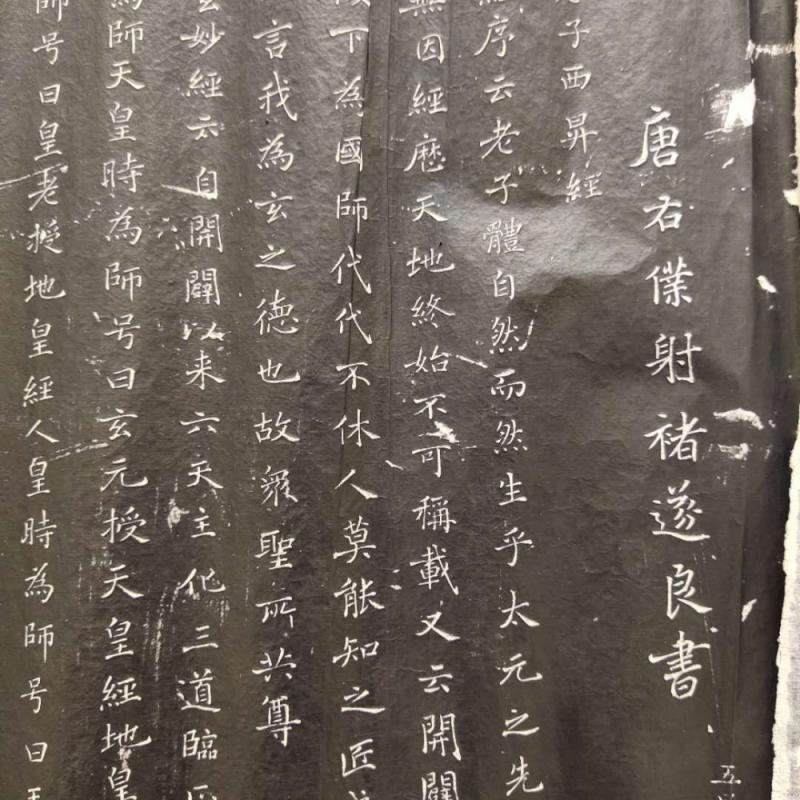 唐右僕射褚遂良書
子西昇經
序云老子體自然而然生乎太元之先
無因經歷天地終始不可稱載又云開闢
下為國師代代不休人莫能知之匠
言我為玄之德也故眾聖所共尊
妙經云自開闢以来六天主化三道臨
為師天皇時為師号曰玄元授天皇經地皇
師号曰皇老授地皇經人皇時為師号曰
五